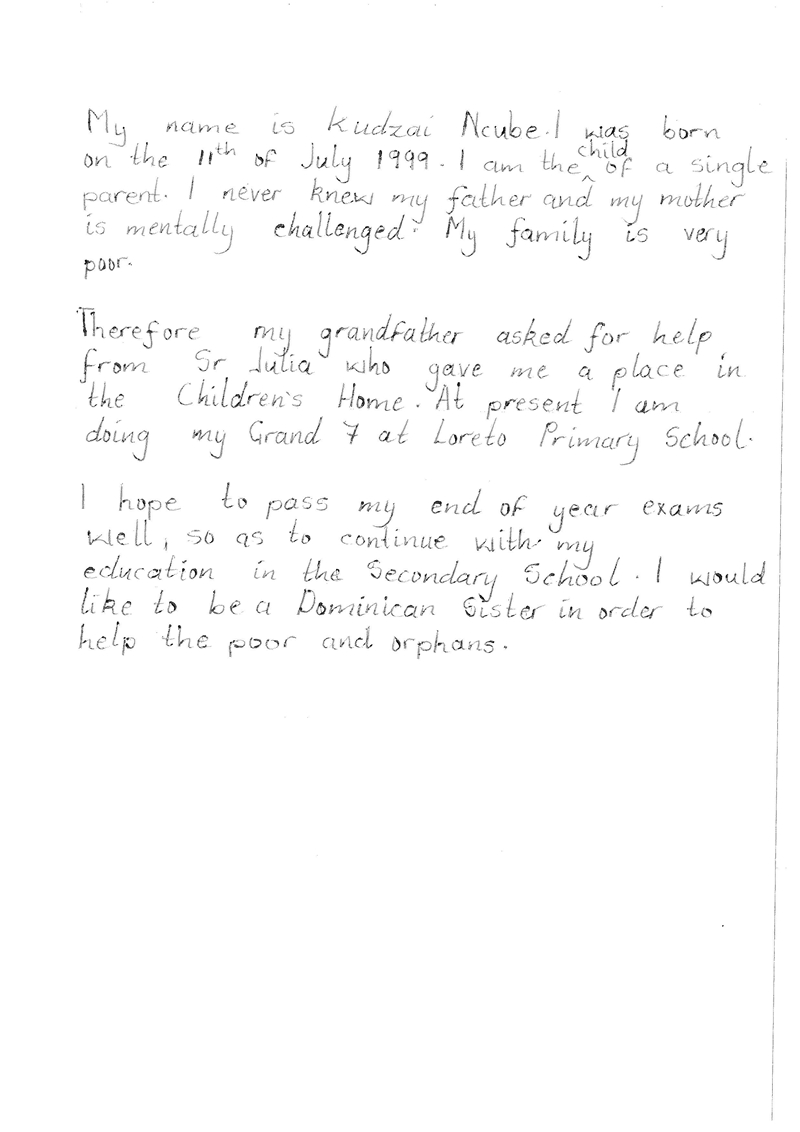 My name is Kudzai Ncube. I was born
on the 11th of July 1999. I am the child of a single
parent. I never knew my father and my mother
is mentally challenged. My family is very
poor.
Therefore my grandfather asked for help
from Sr Julia who gave me a place in
the Children's Home. At present I am
doing my Grand 7 at Loreto Primary School.
I hope to pass my end of year exams
well, so as to continue with my
education in the Secondary School. I would
like to be a Dominican Sister in order to
help the poor and orphans.